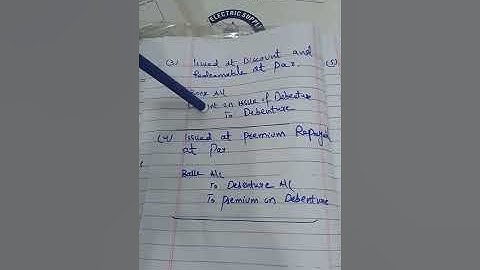 ELECTRIC SUPPLY
(3) Issued at Discount and (5)
Redeemable at Par.
A/c
on issue of Debenture
To Debenture
(4) Issued at premium Repayable
at Par
Bank A/c
To Debenture A/c
To premium on Debenture